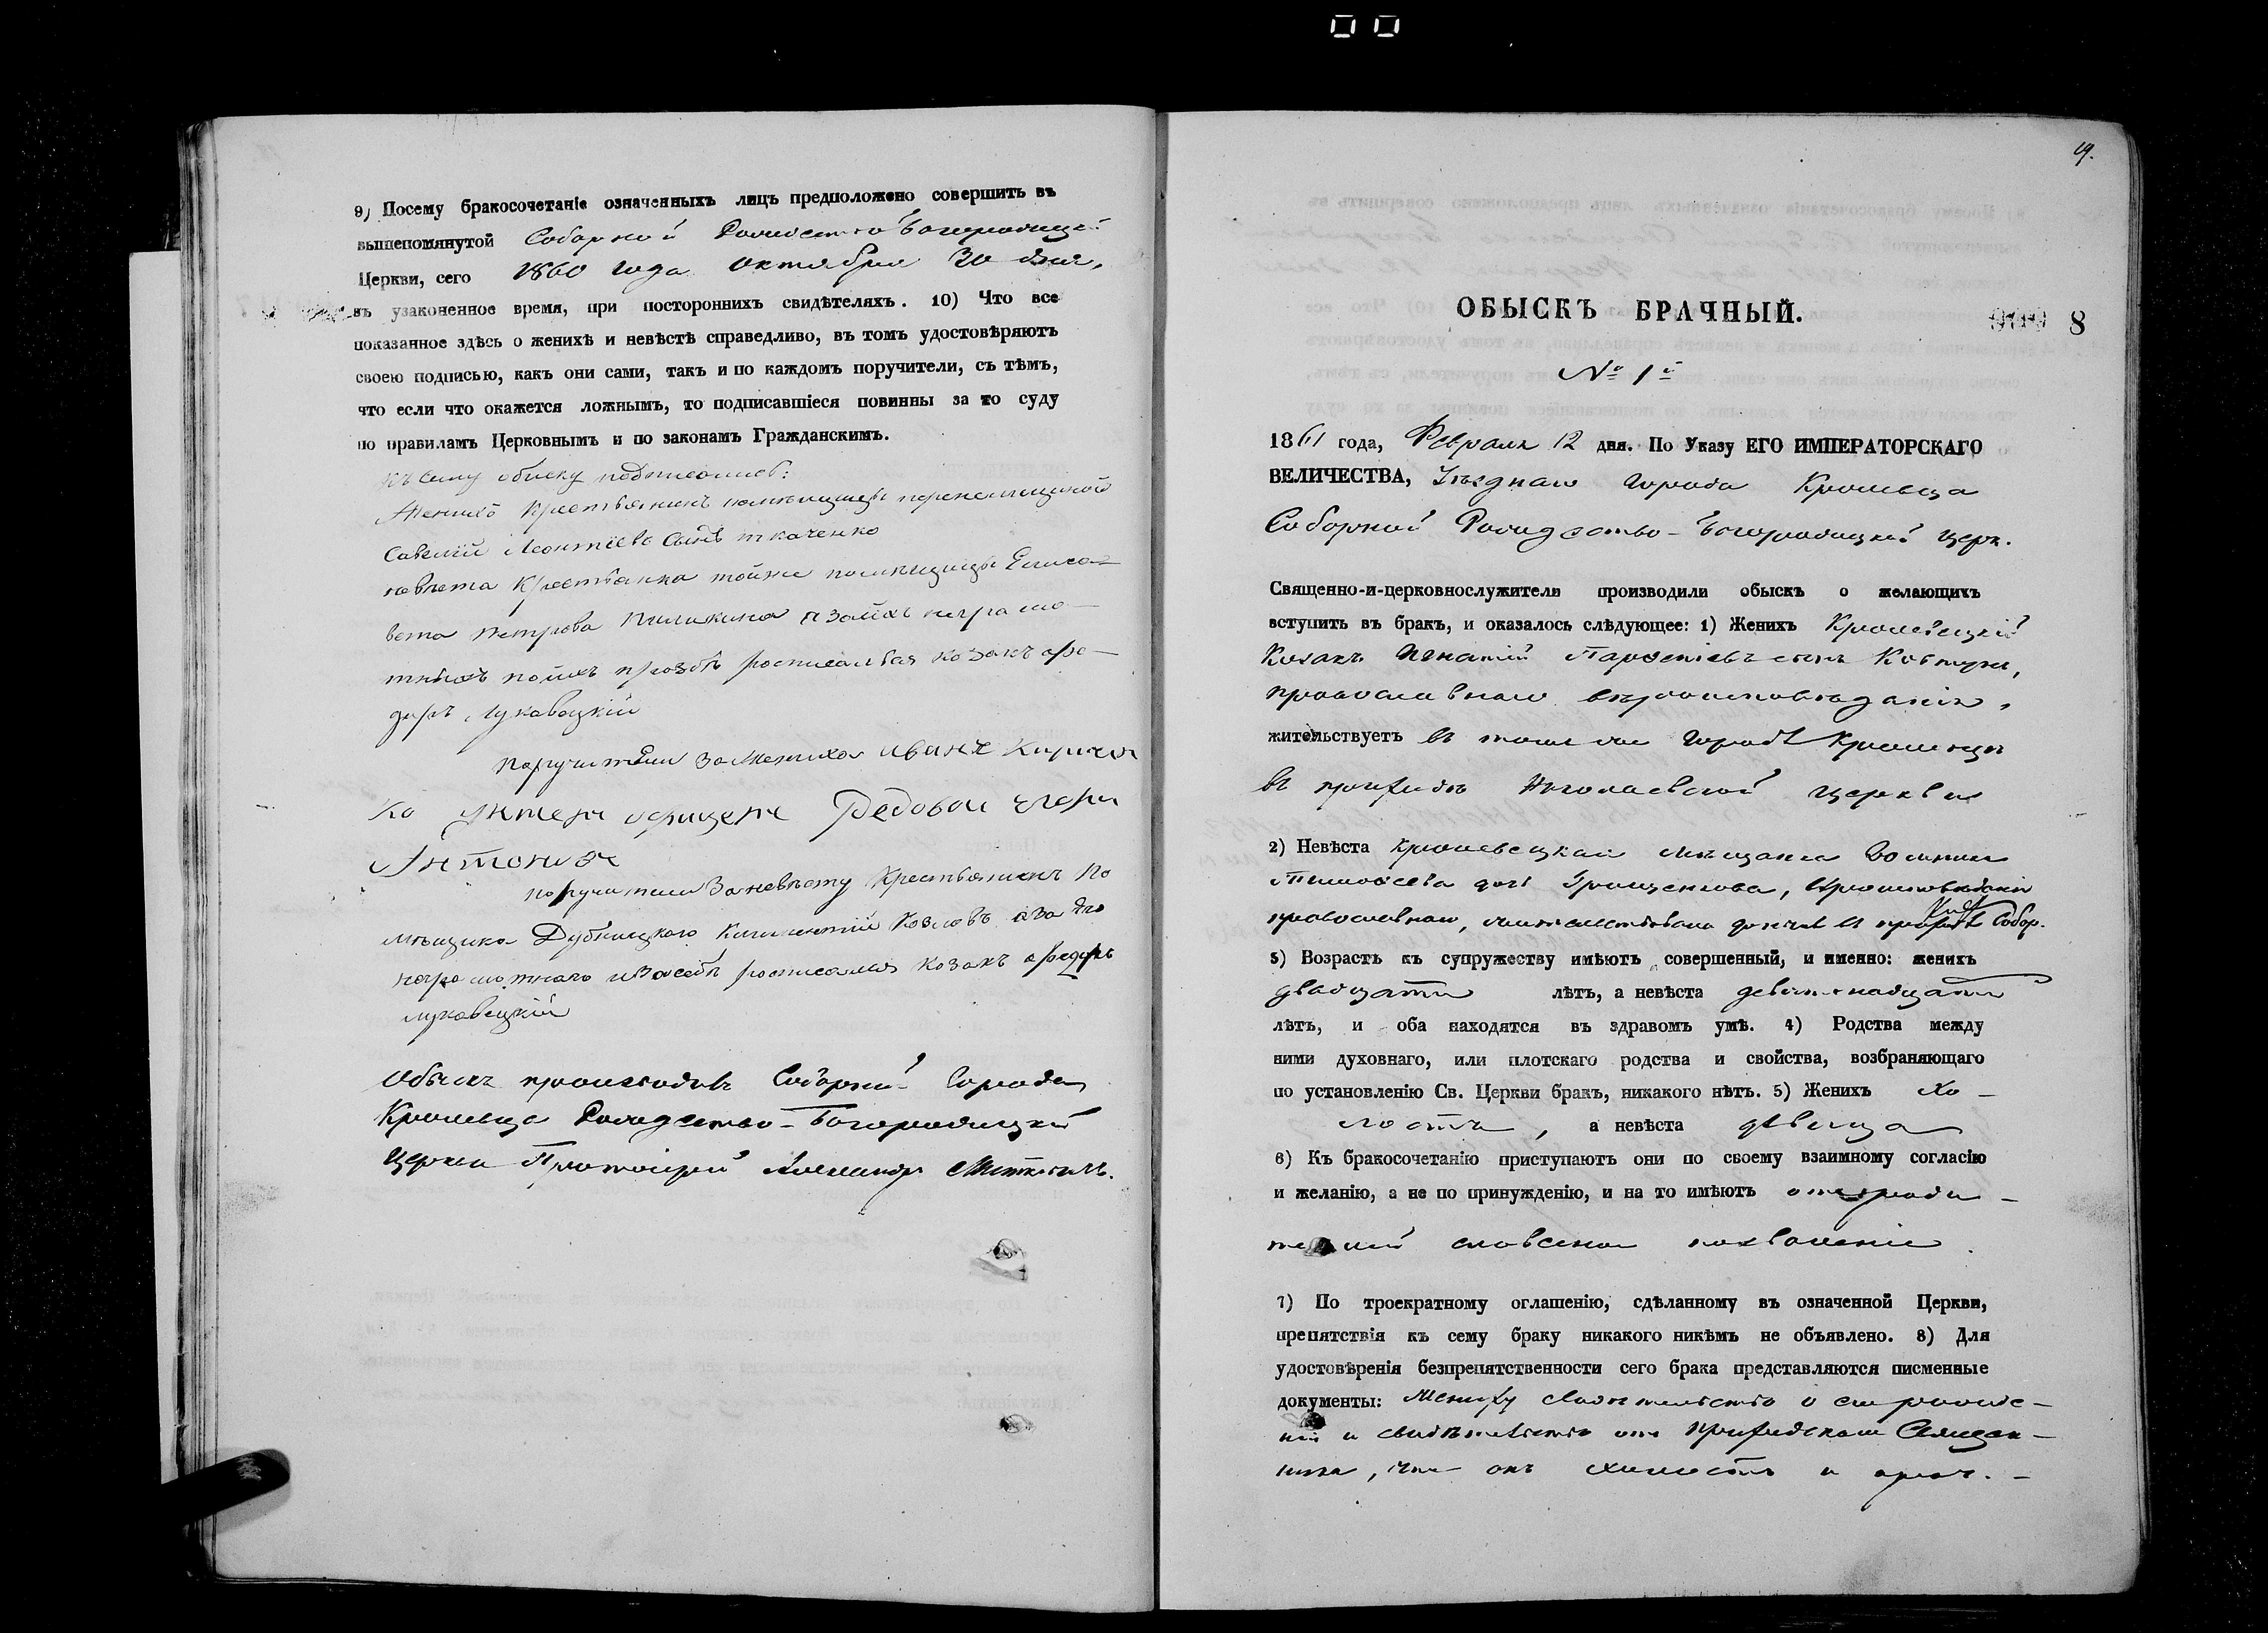 9) Посему бракосочетаніе означенныхъ лицъ предположено совершить въ
вышепомянутой Соборной Рождество Богородицкой
Церкви, сего 1860 года Октября 30 дня,
въ узаконенное время, при постороннихъ свидѣтеляхъ. 10) Что все
показанное здѣсь о женихѣ и невѣстѣ справедливо, въ томъ удостовѣряютъ
своею подписью, какъ они сами, такъ и по каждомъ поручители, съ тѣмъ,
что если что окажется ложнымъ, то подписавшіеся повинны за то суду
по правиламъ Церковнымъ и по законамъ Гражданскимъ.
Къ сему обыску подписались:
Женихъ Крестьянинъ помѣщицы
Савелій Леонтіевъ Сынъ Ткаченко
невѣста Крестьянка тойже помѣщицы Елиса-
вета Петрова а заихъ неграмо-
тныхъ поихъ прозбѣ росписалься козакъ афе-
доръ Луковецкій
поручители Зажениха Иванъ Киричен
ко
Антонов
поручители Заневѣсту Крестьянинъ По
мѣщика Дубницкого Климентій Козловъ аза Его
неграмотнаго изасебѣ росписался козакъ афедоръ
Луковецкій
Обыскъ производилъ Соборной Города
Кролевца Рождество-Богородицкой
Церкви Протоіерей Александр
19.
8
ОБЫСКЪ БРАЧНЫЙ.
№ 1й
1861 года, Февраля 12 дня. По Указу ЕГО ИМПЕРАТОРСКАГО
ВЕЛИЧЕСТВА, Уѣзднаго Города Кролевца
Соборной Рождество-Богородицкой церк.
Священно-и-церковнослужители производили обыскъ о желающихъ
вступить въ бракъ, и оказалось слѣдующее: 1) Женихъ Кролевецкій
Козакъ Игнатій сынъ Ковтунъ,
православнаго вѣроисповѣданія,
жительствуетъ въ томъ же Городѣ Кролевцѣ
въ приходѣ Николаевской церкви
2) Невѣста Кролевецкая мѣщанка
Тимофеева дочь Грищенкова,
православнаго, Собор.
3) Возрастъ къ супружеству имѣютъ совершенный, и именно: женихъ
двадцати лѣтъ, а невѣста девятнадцати
лѣтъ, и оба находятся въ здравомъ умѣ. 4) Родства между
ними духовнаго, или плотскаго родства и свойства, возбраняющаго
по установленію Св. Церкви бракъ, никакого нѣтъ. 5) Женихъ хо-
лостъ, а невѣста дѣвица
6) Къ бракосочетанію приступаютъ они по своему взаимному согласію
и желанію, а не по принужденію, и на то имѣютъ отъ роди-
телей словесное позволеніе.
7) По троекратному оглашенію, сдѣланному въ означенной Церкви,
препятствія къ сему браку никакого никѣмъ не объявлено. 8) Для
удостовѣренія безпрепятственности сего брака представляются писменные
документы: Жениху свидѣтельство о его рожде-
ніи и свидѣтельство отъ Приходскаго Священ-
ника, что онъ холостъ и проч. -